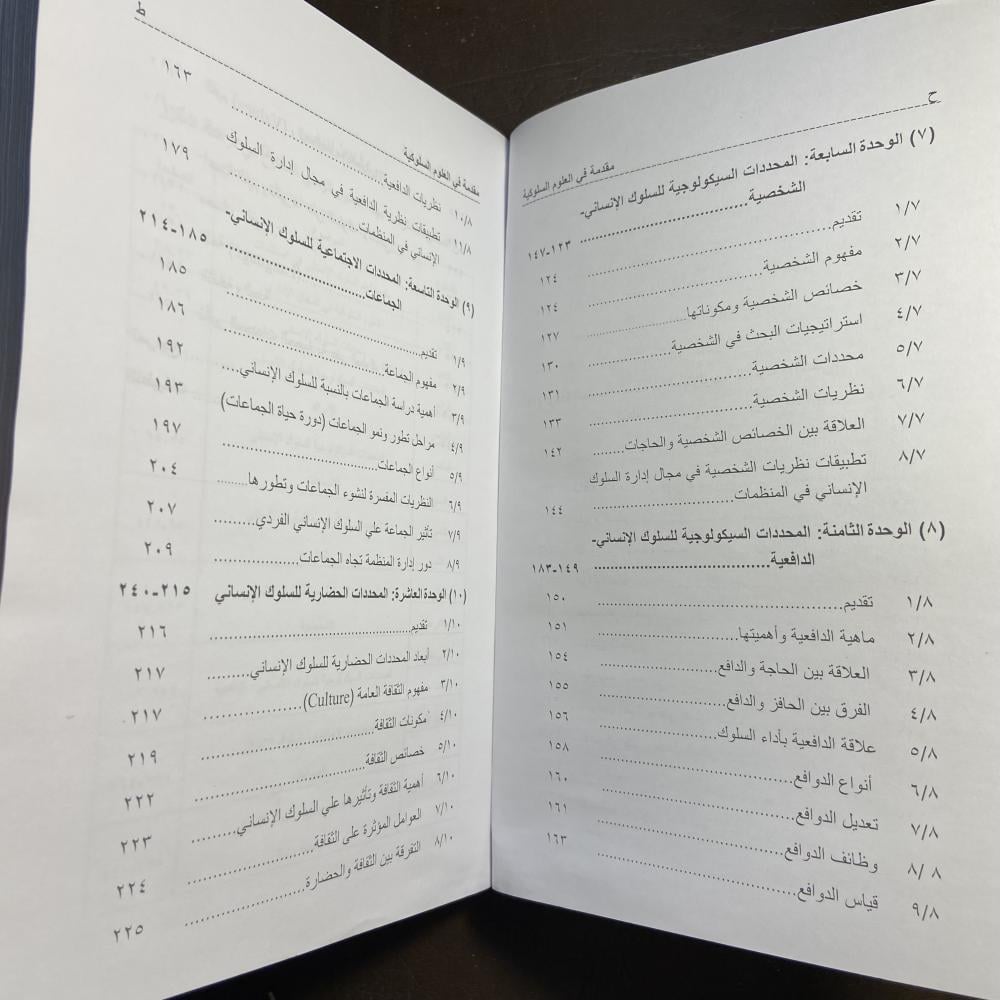 ح
مقدمة في العلوم السلوكية
(٧) الوحدة السابعة: المحددات السيكولوجية للسلوك الإنساني-
الشخصية.......................................... ١٢٣-١٤٧
١/٧ تقديم.......................................... ١٢٤
٢/٧ مفهوم الشخصية.......................................... ١٢٤
٣/٧ خصائص الشخصية ومكوناتها.......................... ١٢٧
٤/٧ استراتيجيات البحث في الشخصية.......................... ١٣٠
٥/٧ محددات الشخصية.......................................... ١٣١
٦/٧ نظريات الشخصية.......................................... ١٣٣
٧/٧ العلاقة بين الخصائص الشخصية والحاجات........ ١٤٢
٨/٧ تطبيقات نظريات الشخصية في مجال إدارة السلوك
الإنساني في المنظمات.......................... ١٤٤
(٨) الوحدة الثامنة: المحددات السيكولوجية للسلوك الإنساني-
الدافعية.......................................... ١٤٩-١٨٣
١/٨ تقديم.......................................... ١٥٠
٢/٨ ماهية الدافعية وأهميتها.......................... ١٥١
٣/٨ العلاقة بين الحاجة والدافع.......................... ١٥٤
٤/٨ الفرق بين الحافز والدافع.......................... ١٥٥
٥/٨ علاقة الدافعية بأداء السلوك.......................... ١٥٦
٦/٨ أنواع الدوافع.......................................... ١٥٨
٧/٨ تعديل الدوافع.......................................... ١٦٠
٨/٨ وظائف الدوافع.......................................... ١٦١
٩/٨ قياس الدوافع.......................................... ١٦٣
ط
مقدمة في العلوم السلوكية
١٠/٨ نظريات الدافعية.......................................... ١٦٣
١١/٨ تطبيقات نظرية الدافعية في مجال إدارة السلوك
الإنساني في المنظمات.......................... ١٧٩
(٩) الوحدة التاسعة: المحددات الاجتماعية للسلوك الإنساني-
الجماعات.......................................... ١٨٥-٢١٤
١/٩ تقديم.......................................... ١٨٥
٢/٩ مفهوم الجماعة.......................................... ١٨٦
٣/٩ أهمية دراسة الجماعات بالنسبة للسلوك الإنساني.... ١٩٢
٤/٩ مراحل تطور ونمو الجماعات (دورة حياة الجماعات) ١٩٣
٥/٩ أنواع الجماعات.......................................... ١٩٧
٦/٩ النظريات المفسرة لنشوء الجماعات وتطورها......... ٢٠٤
٧/٩ تأثير الجماعة علي السلوك الإنساني الفردي......... ٢٠٧
٨/٩ دور إدارة المنظمة تجاه الجماعات.................. ٢٠٩
(١٠) الوحدة العاشرة: المحددات الحضارية للسلوك الإنساني ٢١٥-٢٤٠
١/١٠ تقديم.......................................... ٢١٦
٢/١٠ أبعاد المحددات الحضارية للسلوك الإنساني......... ٢١٧
٣/١٠ مفهوم الثقافة العامة (Culture).................. ٢١٧
٤/١٠ مكونات الثقافة.......................................... ٢١٩
٥/١٠ خصائص الثقافة.......................................... ٢٢٢
٦/١٠ أهمية الثقافة وتأثيرها علي السلوك الإنساني......... ٢٢٣
٧/١٠ العوامل المؤثرة على الثقافة.......................... ٢٢٤
٨/١٠ التفرقة بين الثقافة والحضارة.......................... ٢٢٥